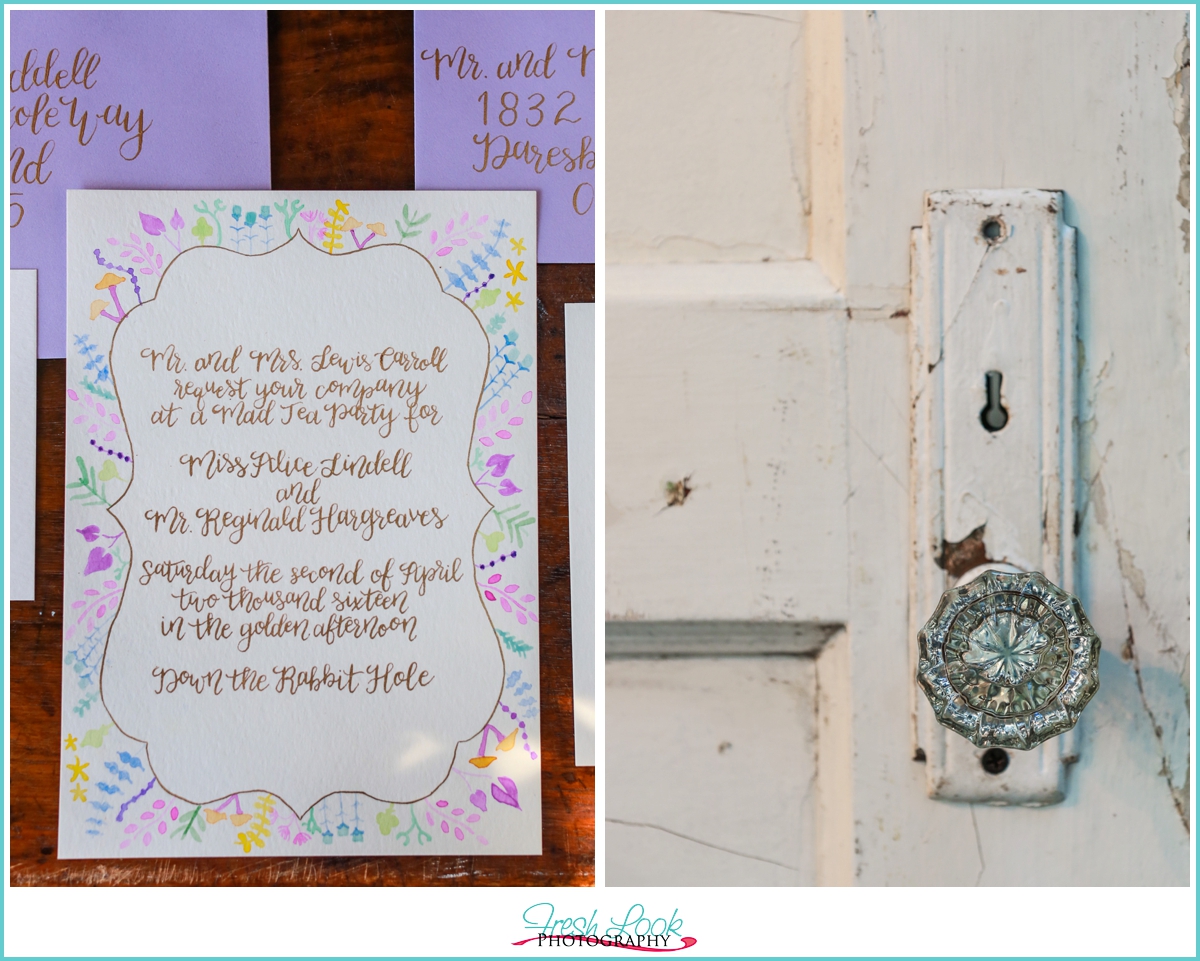 ddell
ole Way
nd
5
Mr. and
1832
Daresb
Mr. and Mrs. Lewis Carroll
request your company
at a Mad Tea Party for
Miss Alice Lindell
and
Mr. Reginald Hargreaves
Saturday the second of April
two thousand sixteen
in the golden afternoon
Down the Rabbit Hole
Fresh Look
PHOTOGRAPHY